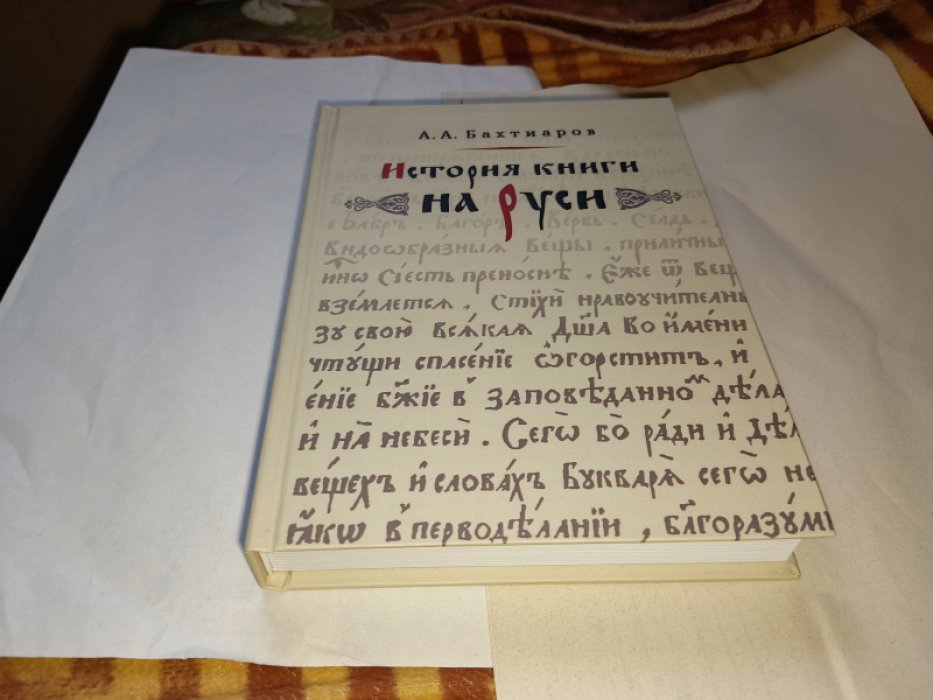 А. А. Бахтиаров
История книги
на Руси
е Бабръ . Багоръ . Вервь . Сѣлдь .
видоѡбра́зныѧ вє́щы . прили́чны
и́нѡ сі́єсть прєно́снѣ . Є҆́жє ѿ вєщ
взє́млєтсѧ . Стїхѝ нравоꙋчи́тєлн
зꙋ свою̀ всѧ́каѧ дш҃а во и҆́мєни
чтꙋ́щи спасє́нїє ѡ҆горститъ , и҆
є́нїє бж҃їє в̾ заповѣ́данно дѣ́ла
и҆ на нєбєсѝ . Сєгѡ̀ бо̀ ра́ди и҆ дѣ́л
вє́щєхъ и҆ слова́хъ Бꙋкварѧ̀ сєгѡ̀ нє
ꙗ҆́кѡ в̾ пєрводѣ́ланїи , бл҃горазꙋ́м